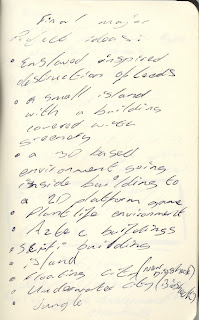 Final major
Project ideas:
• Enslaved inspired
destruction of Leeds
• A small island
with a building
covered with
greenery
• a 3D based
environment going
inside buildings to
a 2D platform game
• Plant life environment
• Aztec buildings
• Sci-fi building
• island
• Floating city
• Underwater city (Bioshock)
• Jungle